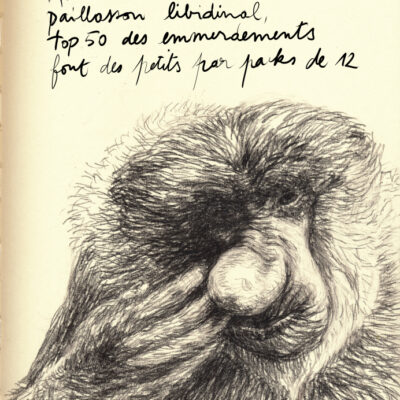 paillasson libidinal,
top 50 des emmerdements
font des petits par packs de 12